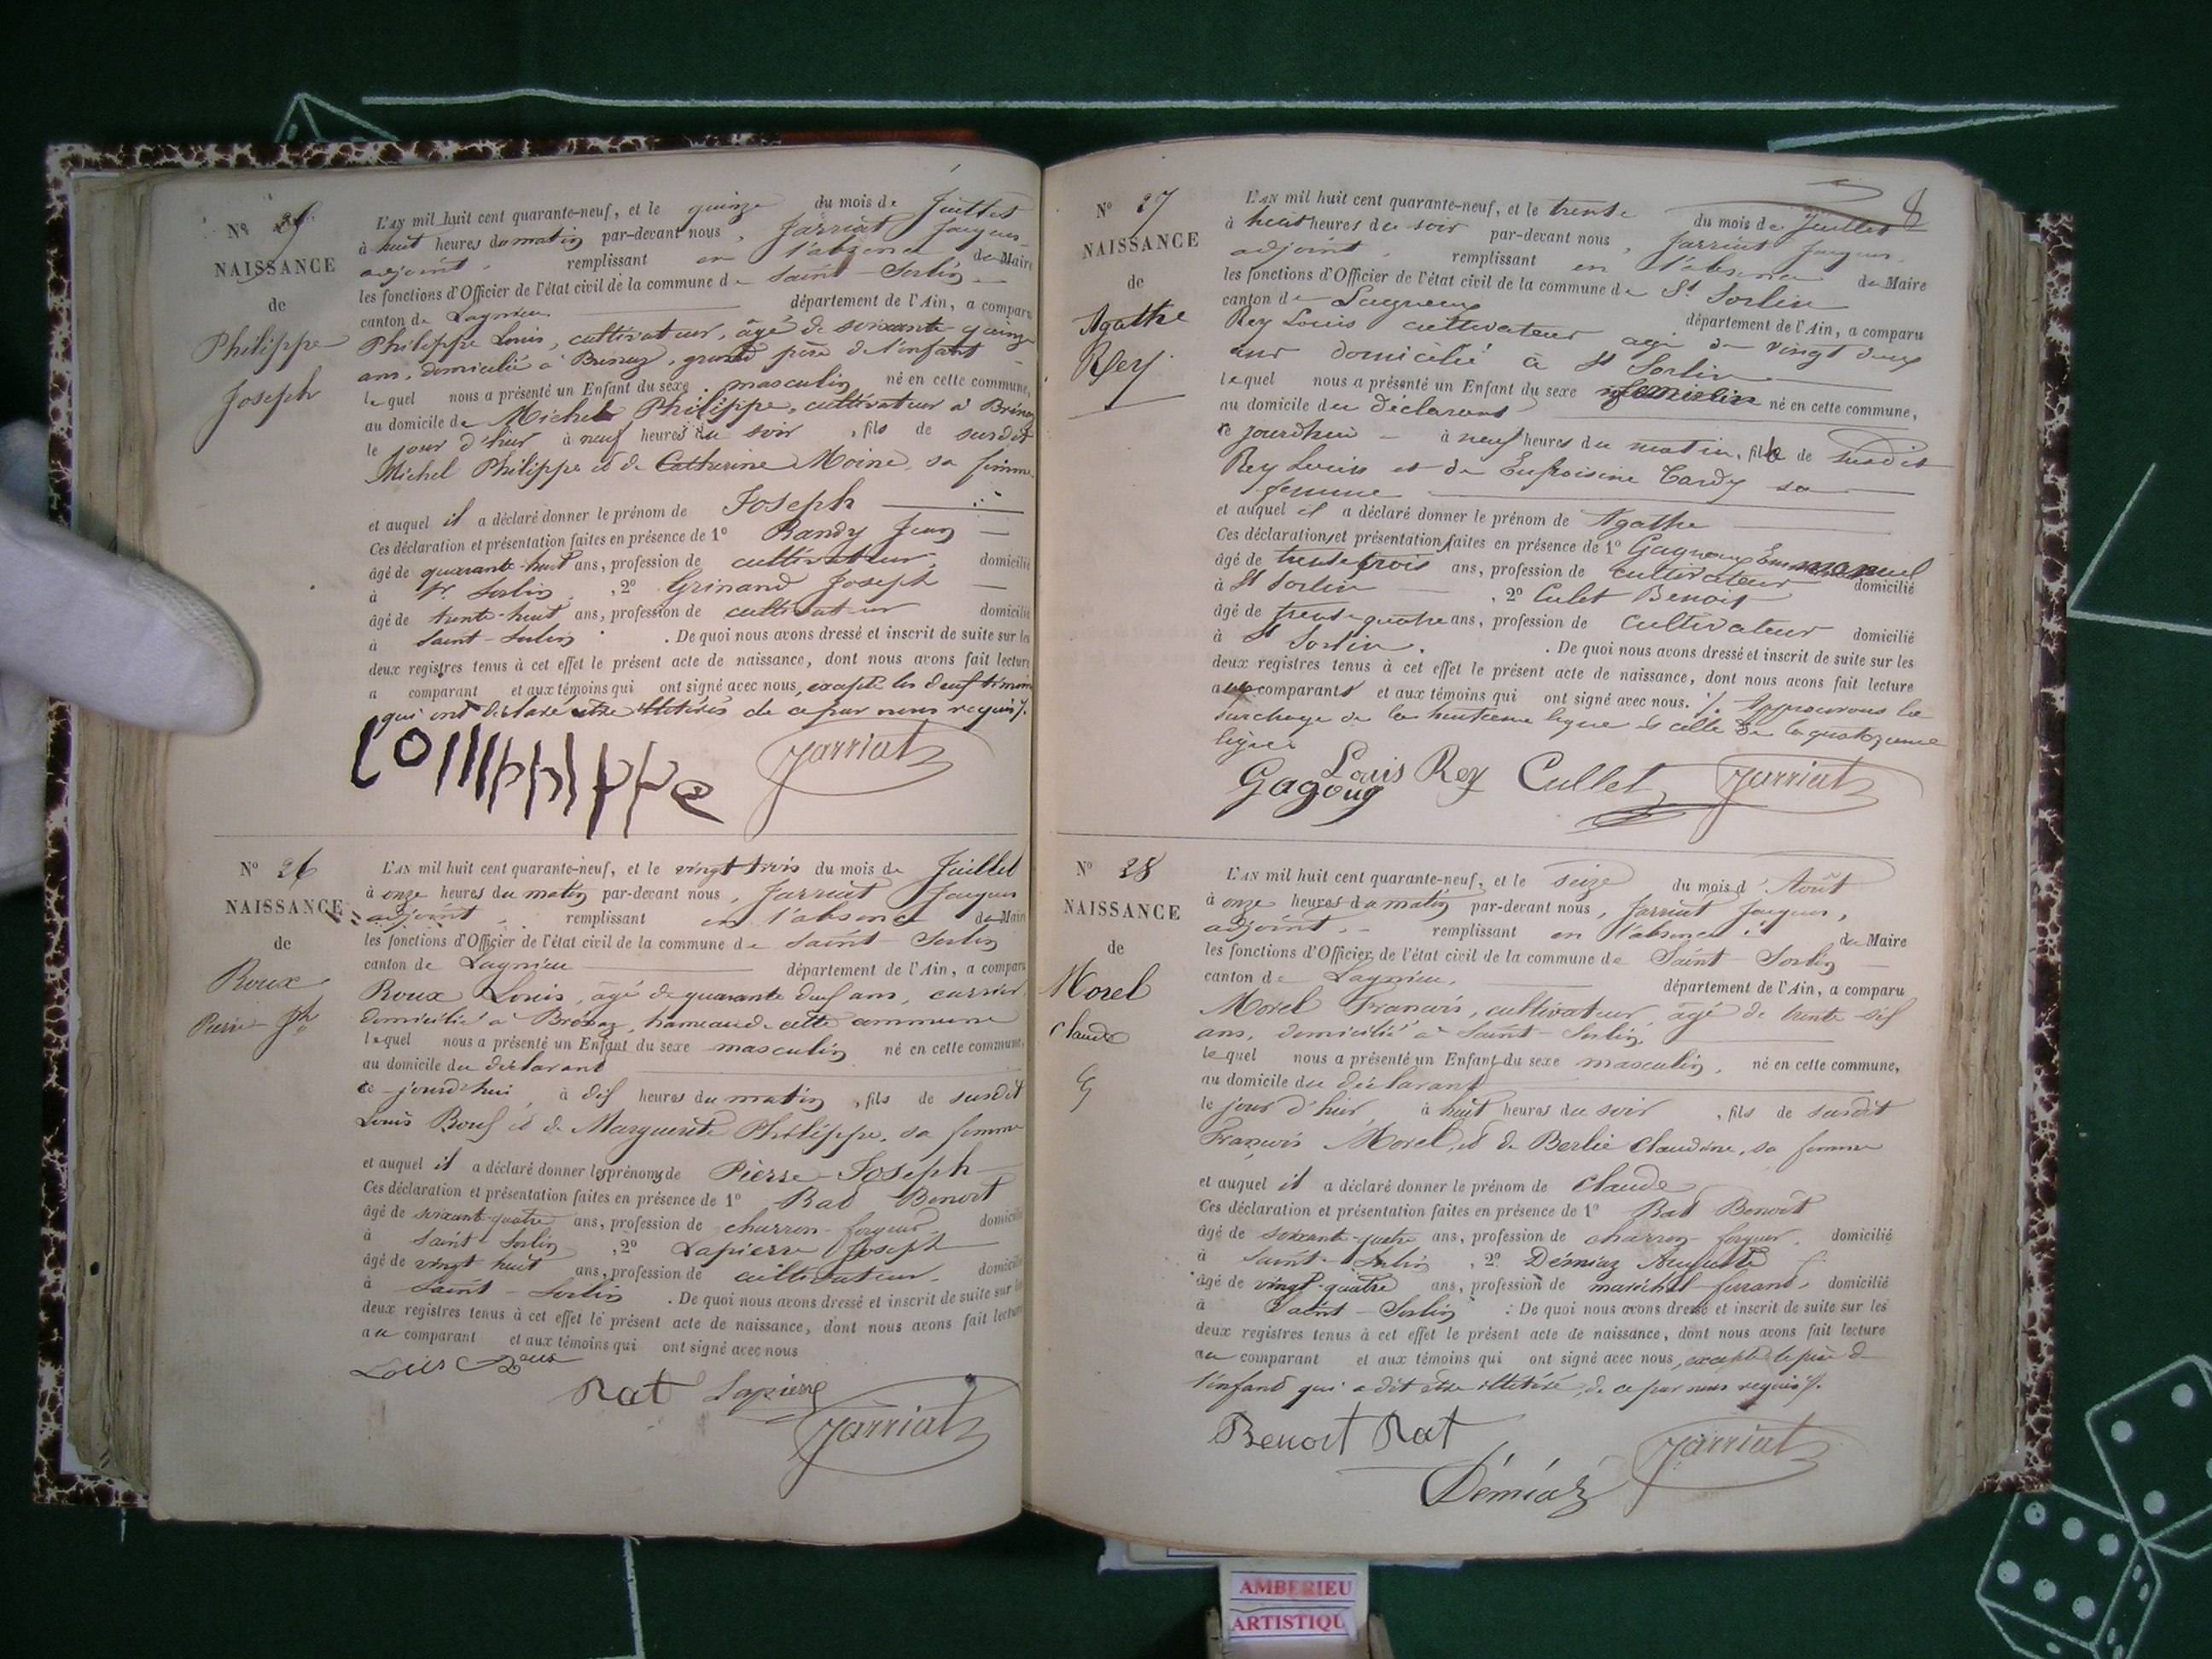 N° 25
NAISSANCE
de
Philippe
Joseph
L'AN mil huit cent quarante-neuf, et le quinze du mois de Juillet
à huit heures du matin par-devant nous, Jarriat Jacques
adjoint, remplissant en l'absence du Maire
les fonctions d'Officier de l'état civil de la commune de Saint-Sorlin
canton de Lagnieu département de l'Ain, a comparu
Philippe Louis, cultivateur, âgé de soixante-quinze
ans, domicilié à grand père de l'enfant
lequel nous a présenté un Enfant du sexe masculin né en cette commune,
au domicile de Michel Philippe, cultivateur à
le jour d'hier à neuf heures du soir, fils de susdit
Michel Philippe et de Catherine Moine, sa femme
et auquel il a déclaré donner le prénom de Joseph
Ces déclaration et présentation faites en présence de 1° Randy Jean
âgé de quarante-huit ans, profession de cultivateur, domicilié
à St. Sorlin, 2° Grinand Joseph
âgé de trente-huit ans, profession de cultivateur domicilié
à Saint-Sorlin. De quoi nous avons dressé et inscrit de suite sur les
deux registres tenus à cet effet le présent acte de naissance, dont nous avons fait lecture
a comparant et aux témoins qui ont signé avec nous, excepté les deux témoins
qui ont déclaré être illitérés de ce par nous requis /.
Jarriat
N° 26
NAISSANCE
de
Roux
Pierre-Jh
L'AN mil huit cent quarante-neuf, et le vingt trois du mois de Juillet
à onze heures du matin par-devant nous, Jarriat Jacques
adjoint, remplissant en l'absence du Maire
les fonctions d'Officier de l'état civil de la commune de Saint-Sorlin
canton de Lagnieu département de l'Ain, a comparu
Roux Louis, âgé de quarante deux ans, carrier
domicilié à Brénaz, hameau de cette commune
lequel nous a présenté un Enfant du sexe masculin né en cette commune,
au domicile du déclarant
ce jourd'hui, à dix heures du matin, fils de susdit
Louis Roux et de Marguerite Philippe, sa femme
et auquel il a déclaré donner les prénoms de Pierre-Joseph
Ces déclaration et présentation faites en présence de 1° Rat Benoit
âgé de soixante-quatre ans, profession de charron-forgeur, domicilié
à Saint-Sorlin, 2° Lapierre Joseph
âgé de vingt huit ans, profession de cultivateur, domicilié
à Saint-Sorlin. De quoi nous avons dressé et inscrit de suite sur les
deux registres tenus à cet effet le présent acte de naissance, dont nous avons fait lecture
au comparant et aux témoins qui ont signé avec nous
Louis Roux
Rat Lapierre
Jarriat
8
N° 27
NAISSANCE
de
Agathe
Rey
L'AN mil huit cent quarante-neuf, et le trente du mois de Juillet
à huit heures du soir par-devant nous, Jarriat Jacques
adjoint, remplissant en l'absence du Maire
les fonctions d'Officier de l'état civil de la commune de St Sorlin
canton de Lagneux département de l'Ain, a comparu
Rey Louis cultivateur agé de vingt deux
ans domicilié à St Sorlin
lequel nous a présenté un Enfant du sexe féminin né en cette commune,
au domicile du déclarant
ce jourdhui à neuf heures du matin, fille de susdit
Rey Louis et de Eufroisine Tardy sa
femme
et auquel il a déclaré donner le prénom de Agathe
Ces déclaration et présentation faites en présence de 1° Gagnoux Emmanuel
âgé de trente trois ans, profession de cultivateur domicilié
à St Sorlin, 2° Culet Benoit
âgé de trente-quatre ans, profession de cultivateur domicilié
à St Sorlin. De quoi nous avons dressé et inscrit de suite sur les
deux registres tenus à cet effet le présent acte de naissance, dont nous avons fait lecture
aux comparants et aux témoins qui ont signé avec nous. /. Approuvons la
surcharge de la huitieme ligne et celle de la quatorzieme
ligne
Louis Rey Cullet Jarriat
Gagoug
N° 28
NAISSANCE
de
Morel
Claude
L'AN mil huit cent quarante-neuf, et le seize du mois d'Août
à onze heures du matin par-devant nous, Jarriat Jacques,
adjoint, remplissant en l'absence du Maire
les fonctions d'Officier de l'état civil de la commune de Saint-Sorlin
canton de Lagnieu, département de l'Ain, a comparu
Morel Francois, cultivateur, âgé de trente-six
ans, domicilié à Saint-Sorlin,
lequel nous a présenté un Enfant du sexe masculin, né en cette commune,
au domicile du déclarant
le jour d'hier, à huit heures du soir, fils de susdit
François Morel, et de Berlie Claudine, sa femme
et auquel il a déclaré donner le prénom de Claude
Ces déclaration et présentation faites en présence de 1° Rat Benoit
âgé de soixante-quatre ans, profession de charron-forgeur, domicilié
à Saint-Sorlin, 2° Démiaz Auguste
âgé de vingt-quatre ans, profession de maréchal-ferrant, domicilié
à Saint-Sorlin. De quoi nous avons dressé et inscrit de suite sur les
deux registres tenus à cet effet le présent acte de naissance, dont nous avons fait lecture
au comparant et aux témoins qui ont signé avec nous, excepté le père de
l'enfant qui a dit être illitéré, de ce par nous requis /.
Benoit Rat
Démiaz Jarriat
AMBERIEU
ARTISTIQU